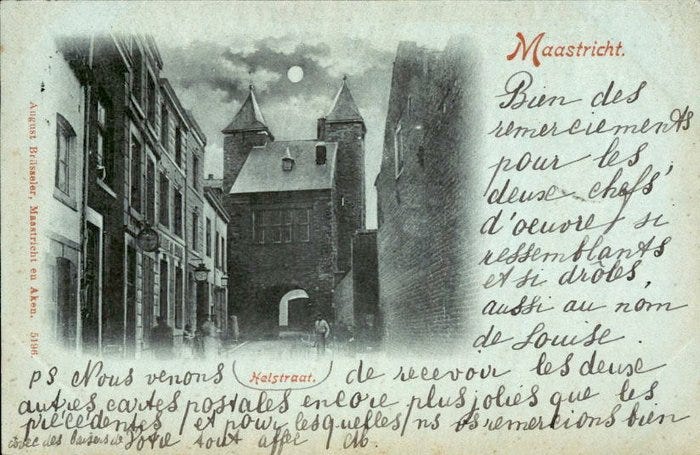 Maastricht.
Bien des
remerciements
pour les
deux chefs
d'oeuvre si
ressemblants
et si drôles,
aussi au nom
de Louise.
August Brüsseler, Maastricht en Aken. 5196
Helstraat.
PS Nous venons de recevoir les deux
autres cartes postales encore plus jolies que les
précédentes et pour lesquelles ns vs remercions bien
avec des baisers de Votre tout affec